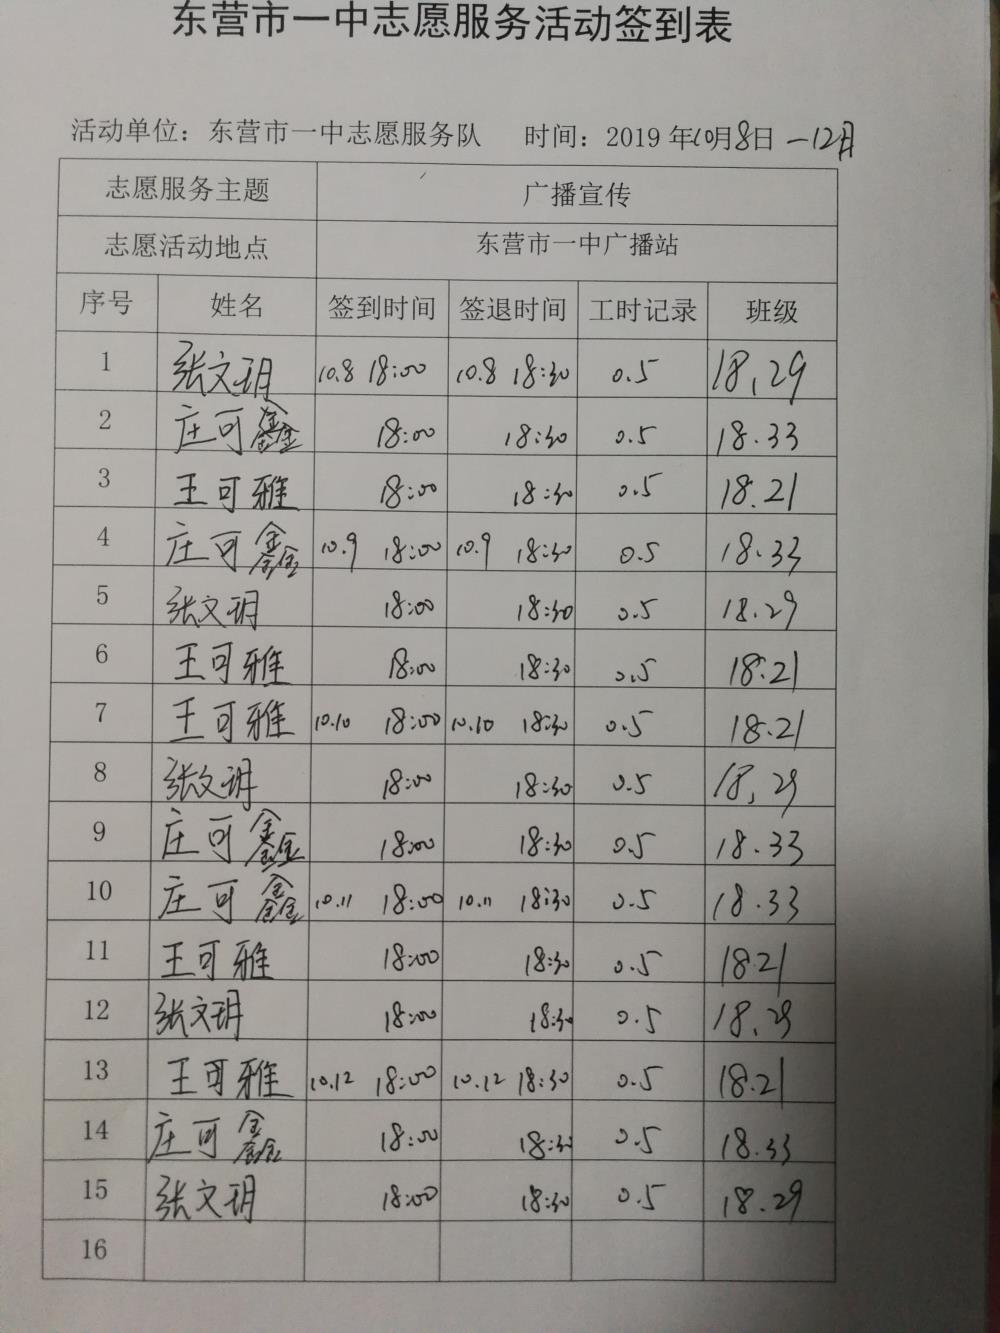 东营市一中志愿服务活动签到表
活动单位：东营市一中志愿服务队 时间：2019 年10月8日 —12日
志愿服务主题 广播宣传
志愿活动地点 东营市一中广播站
序号 姓名 签到时间 签退时间 工时记录 班级
1 张文玥 10.8 18:00 10.8 18:30 0.5 18.29
2 庄可鑫 18:00 18:30 0.5 18.33
3 王可雅 18:00 18:30 0.5 18.21
4 庄可鑫 10.9 18:00 10.9 18:30 0.5 18.33
5 张文玥 18:00 18:30 0.5 18.29
6 王可雅 18:00 18:30 0.5 18.21
7 王可雅 10.10 18:00 10.10 18:30 0.5 18.21
8 张文玥 18:00 18:30 0.5 18.29
9 庄可鑫 18:00 18:30 0.5 18.33
10 庄可鑫 10.11 18:00 10.11 18:30 0.5 18.33
11 王可雅 18:00 18:30 0.5 18.21
12 张文玥 18:00 18:30 0.5 18.29
13 王可雅 10.12 18:00 10.12 18:30 0.5 18.21
14 庄可鑫 18:00 18:30 0.5 18.33
15 张文玥 18:00 18:30 0.5 18.29
16